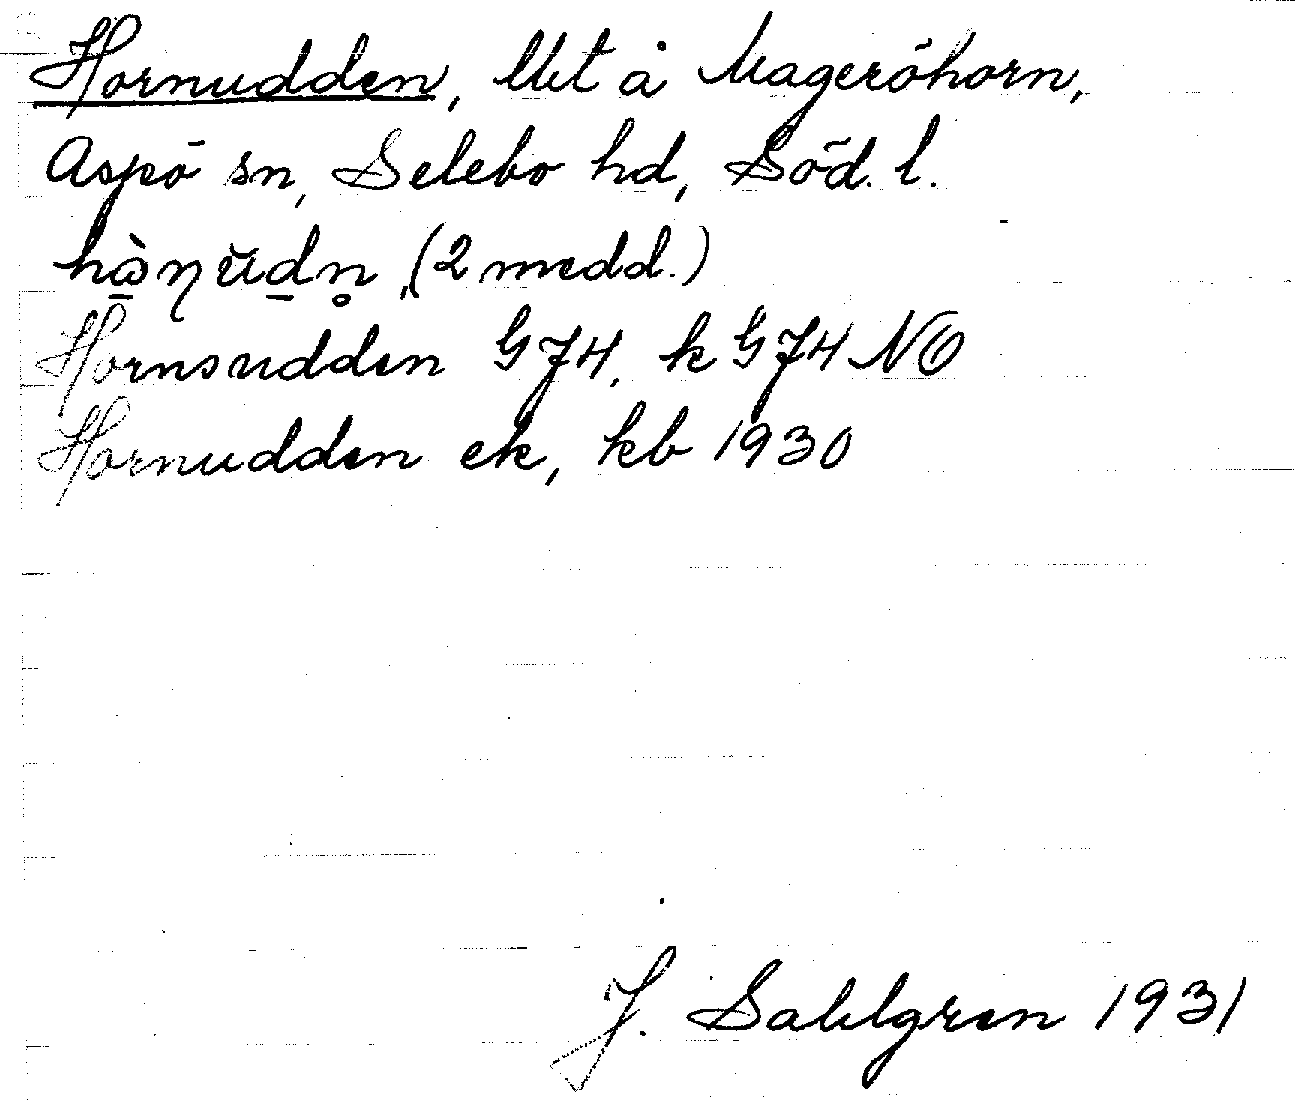 Hornudden, lht å Mageröhorn,
Aspö sn, Selebo hd, Söd. l.
(2 medd.)
Hornsudden G74, k G74 NO
Hornudden ek, kb 1930
J. Sahlgren 1931